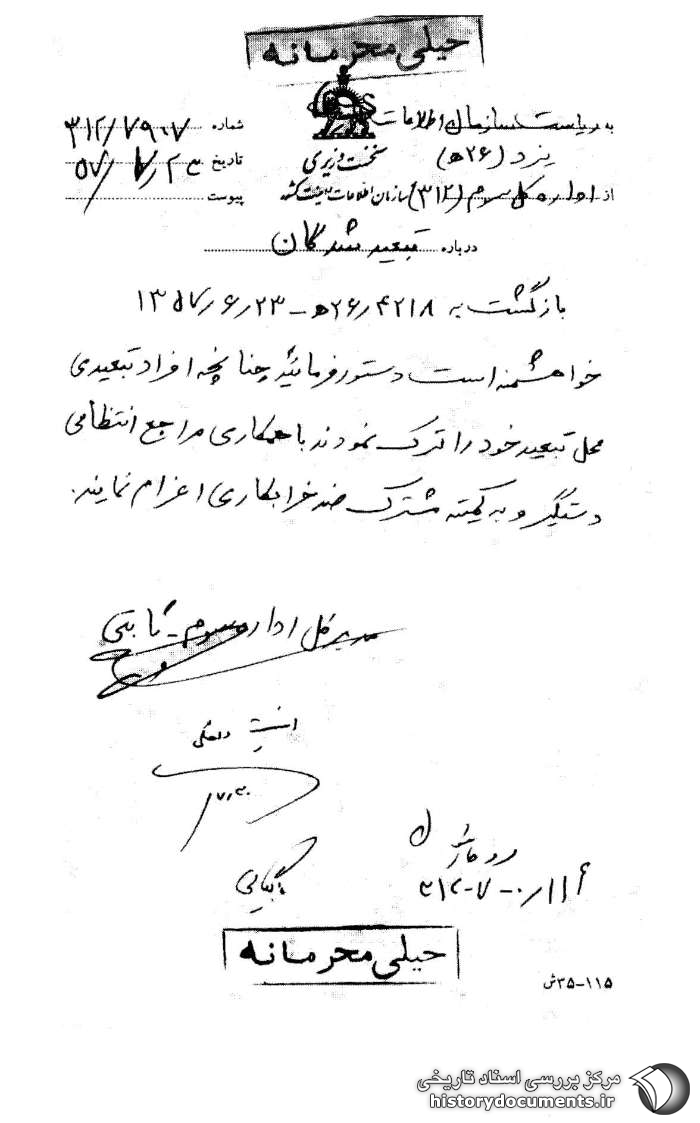 خیلی محرمانه
به ریاست سازمان اطلاعات یزد (۲۶ه)
نخست وزیری
سازمان اطلاعات و امنیت کشور
از اداره کل سوم (۳۱۲)
شماره ۳۱۲/۷۹۰۷
تاریخ ۵۷/۷/۲۳
پیوست
درباره تبعید شدگان
بازگشت به ۲۶/۴۲۱۸ه – ۱۳۵۷/۶/۲۳
خواهشمند است دستور فرمائید چنانچه افراد تبعیدی
محل تبعید خود را ترک نمودند با همکاری مراجع انتظامی
دستگیر و به کمیته مشترک ضد خرابکاری اعزام نمایند.
مدیر کل اداره سوم – ثابتی
امنیت داخلی
بایگانی
خیلی محرمانه
۱۱۵–۳۵ش
مرکز بررسی اسناد تاریخی
historydocuments.ir